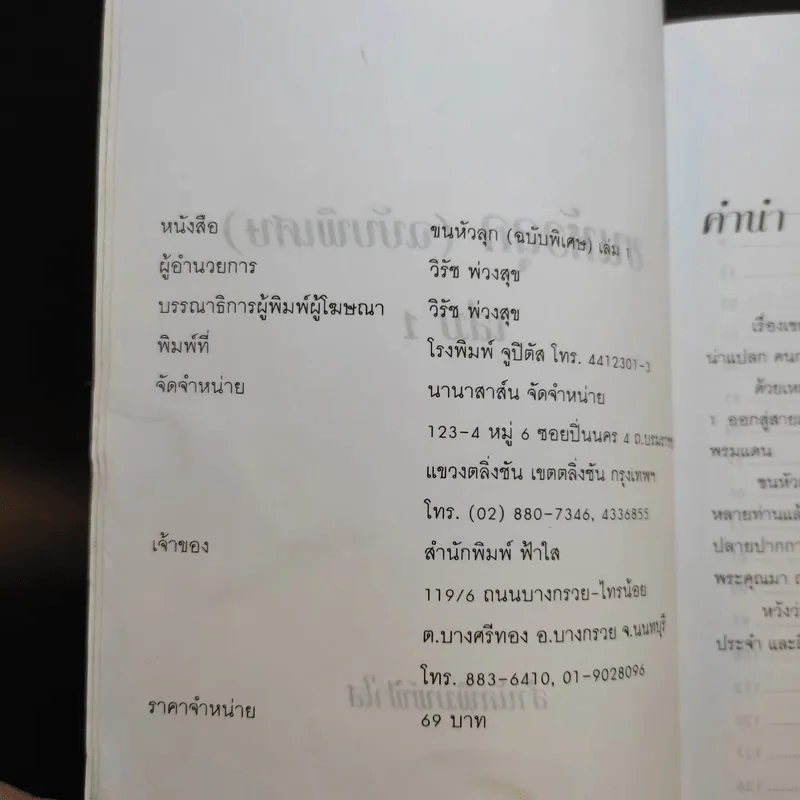 หนังสือ ขนหัวลุก (ฉบับพิเศษ) เล่ม 1
ผู้อำนวยการ วิรัช พ่วงสุข
บรรณาธิการผู้พิมพ์ผู้โฆษณา วิรัช พ่วงสุข
พิมพ์ที่ โรงพิมพ์ จูปิตัส โทร. 4412301-3
จัดจำหน่าย นานาสาส์น จัดจำหน่าย
123-4 หมู่ 6 ซอยปิ่นนคร 4 ถ.บรมราช
แขวงตลิ่งชัน เขตตลิ่งชัน กรุงเทพฯ
โทร. (02) 880-7346, 4336855
เจ้าของ สำนักพิมพ์ ฟ้าใส
119/6 ถนนบางกรวย-ไทรน้อย
ต.บางศรีทอง อ.บางกรวย จ.นนทบุรี
โทร. 883-6410, 01-9028096
ราคาจำหน่าย 69 บาท
คำนำ
เรื่องเขย
น่าแปลก คนก
ด้วยเหต
1 ออกสู่สายต
พรมแดน
ขนหัวล
หลายท่านแล้
ปลายปากกา
พระคุณมา ณ
หวังว่
ประจำ และสิ